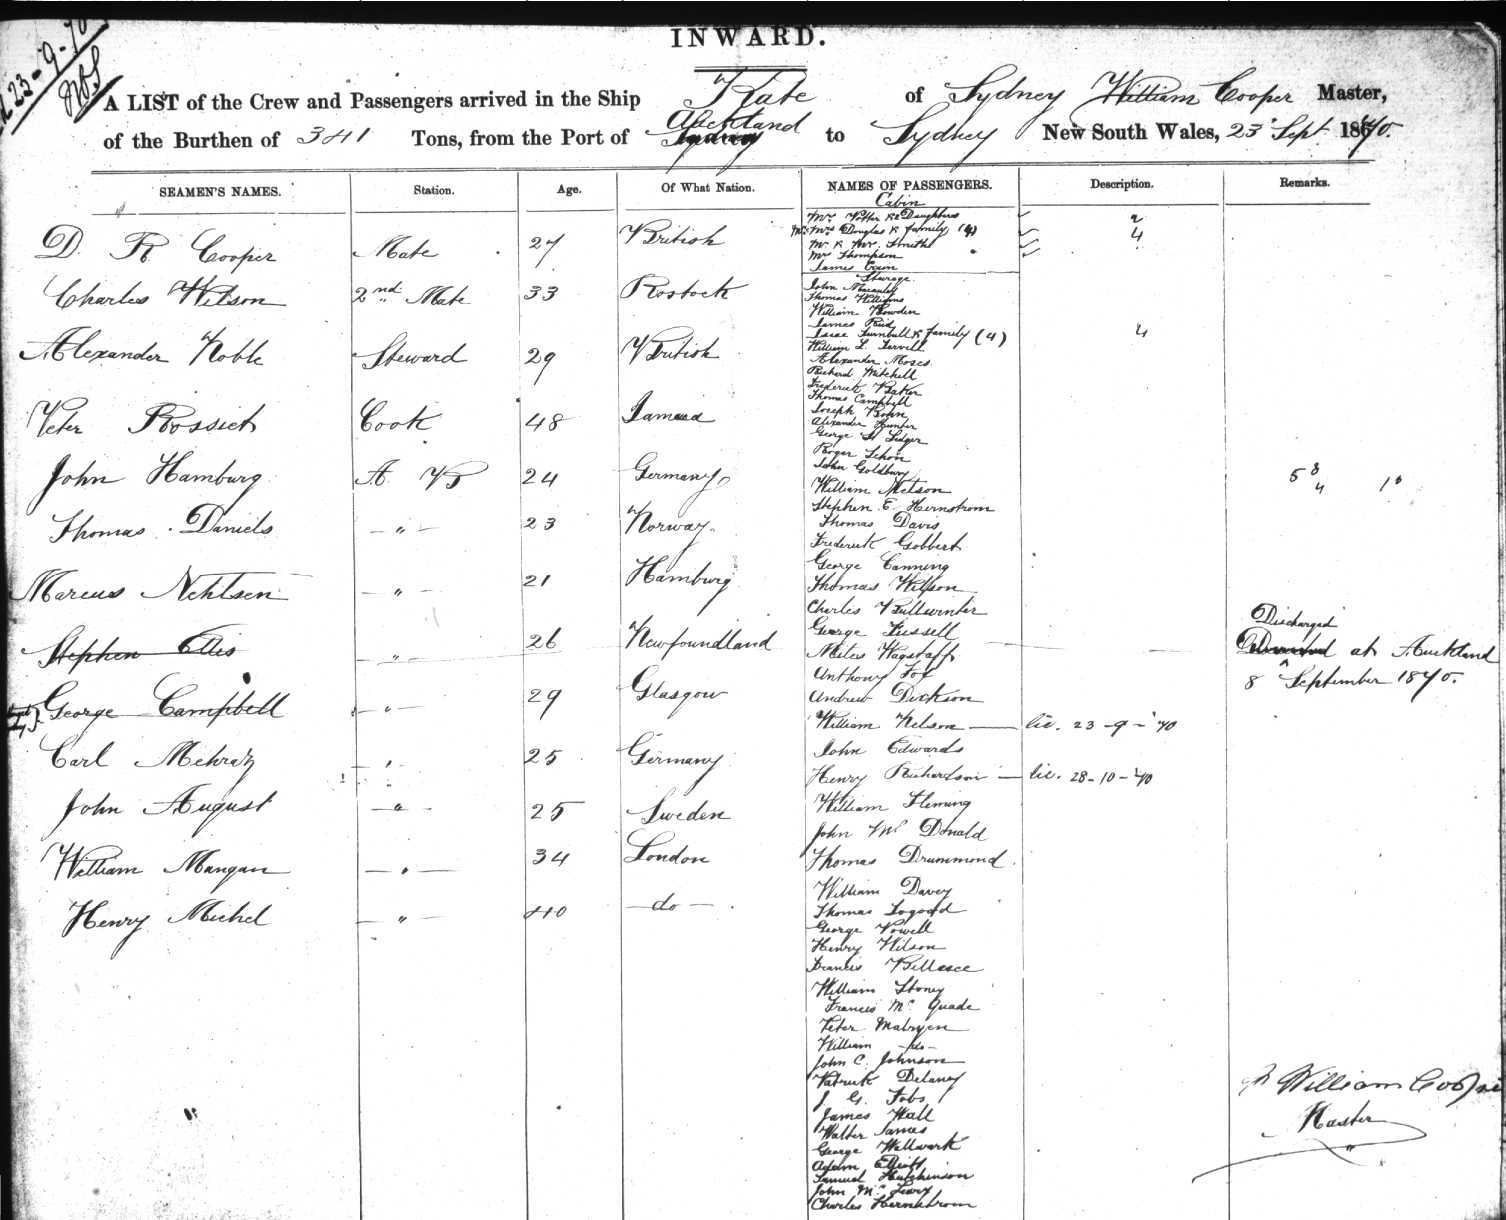 23-9-70
INWARD.
A LIST of the Crew and Passengers arrived in the Ship Kate of Sydney William Cooper Master,
of the Burthen of 341 Tons, from the Port of Auckland to Sydney New South Wales, 23 Sept 1870.
SEAMEN'S NAMES. Station. Age. Of What Nation. NAMES OF PASSENGERS. Description. Remarks.
D. R Cooper Mate 27 British
Charles Wilson 2nd Mate 33 Rostock
Alexander Noble Steward 29 British
Peter Rossich Cook 48
John Hamburg A B 24 Germany
Thomas Daniels " 23 Norway
Marcus Nehlsen " 21 Hamburg
Stephen Ellis " 26 Newfoundland Discharged at Auckland
8 September 1870.
George Campbell " 29 Glasgow
Carl Mehratz " 25 Germany
John August " 25 Sweden
William Mangan " 34 London
Henry Michel " 40 do
Cabin
Mrs Potter & 2 Daughters 2
Mr Mrs Douglas & family (4) 4
Mr & Mrs Smith
Mrs Thompson
James
Steerage
John Macauley
Thomas Williams
William Bowden
James Reid
Isaac Turnbull & family (4) 4
William L. Farvell
Alexander Moses
Richard Mitchell
Frederick Baker
Thomas Campbell
Joseph Bohn
Alexander Hunter
George H Ledger
Roger Schon
John Goldbury
William Metson
Stephen E. Hernstrom
Thomas Davis
Frederick Gobbert
George Canning
Thomas Wilson
Charles Bullwinter
George Fussell
Miles Wagstaff
Anthony Fox
Andrew Dickson
William Nelson — lic. 23-9-'70
John Edwards
Henry Richardson — lic. 28-10-'70
William Fleming
John Mc Donald
Thomas Drummond
William Davey
Thomas Togood
George Powell
Henry Wilson
Francis
William Stoney
Francis Mc Quade
Peter
William do
John C. Johnson
Patrick Delaney
J. G. Fobs
James Wall
Walter James
George Wellwark
Adam Elliott
Samuel Hutchinson
John Mc Leary
Charles Hernstrom
William Cooper
Master